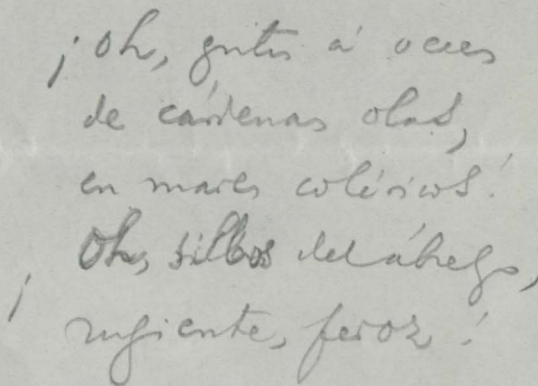 ¡Oh, gritos á veces
de cárdenas olas,
en mares coléricos!
¡Oh, silbos del ábrego,
rugiente, feroz!